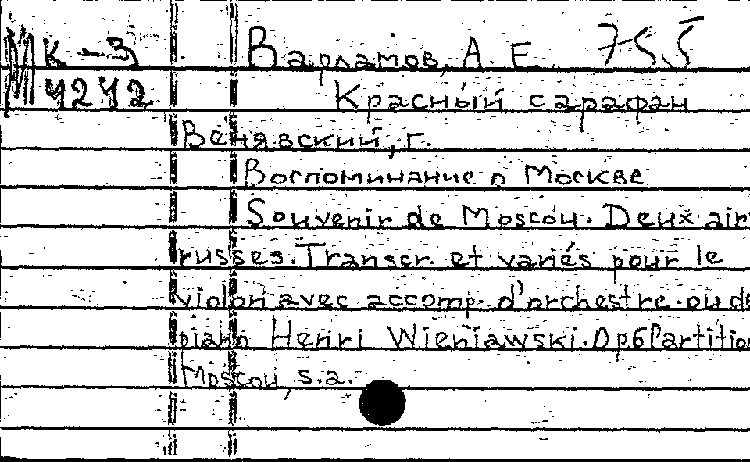 МК-3 Варламов, А. Е. 755
4242 Красный сарафан
Венявский, Г.
Воспоминание о Москве
Souvenir de Moscou. Deux air
russes. Transcr et variés pour le
violon avec accomp. d'orchestre ou de
piano Henri Wieniawski. Op6 Partitio
Moscou, s.a.